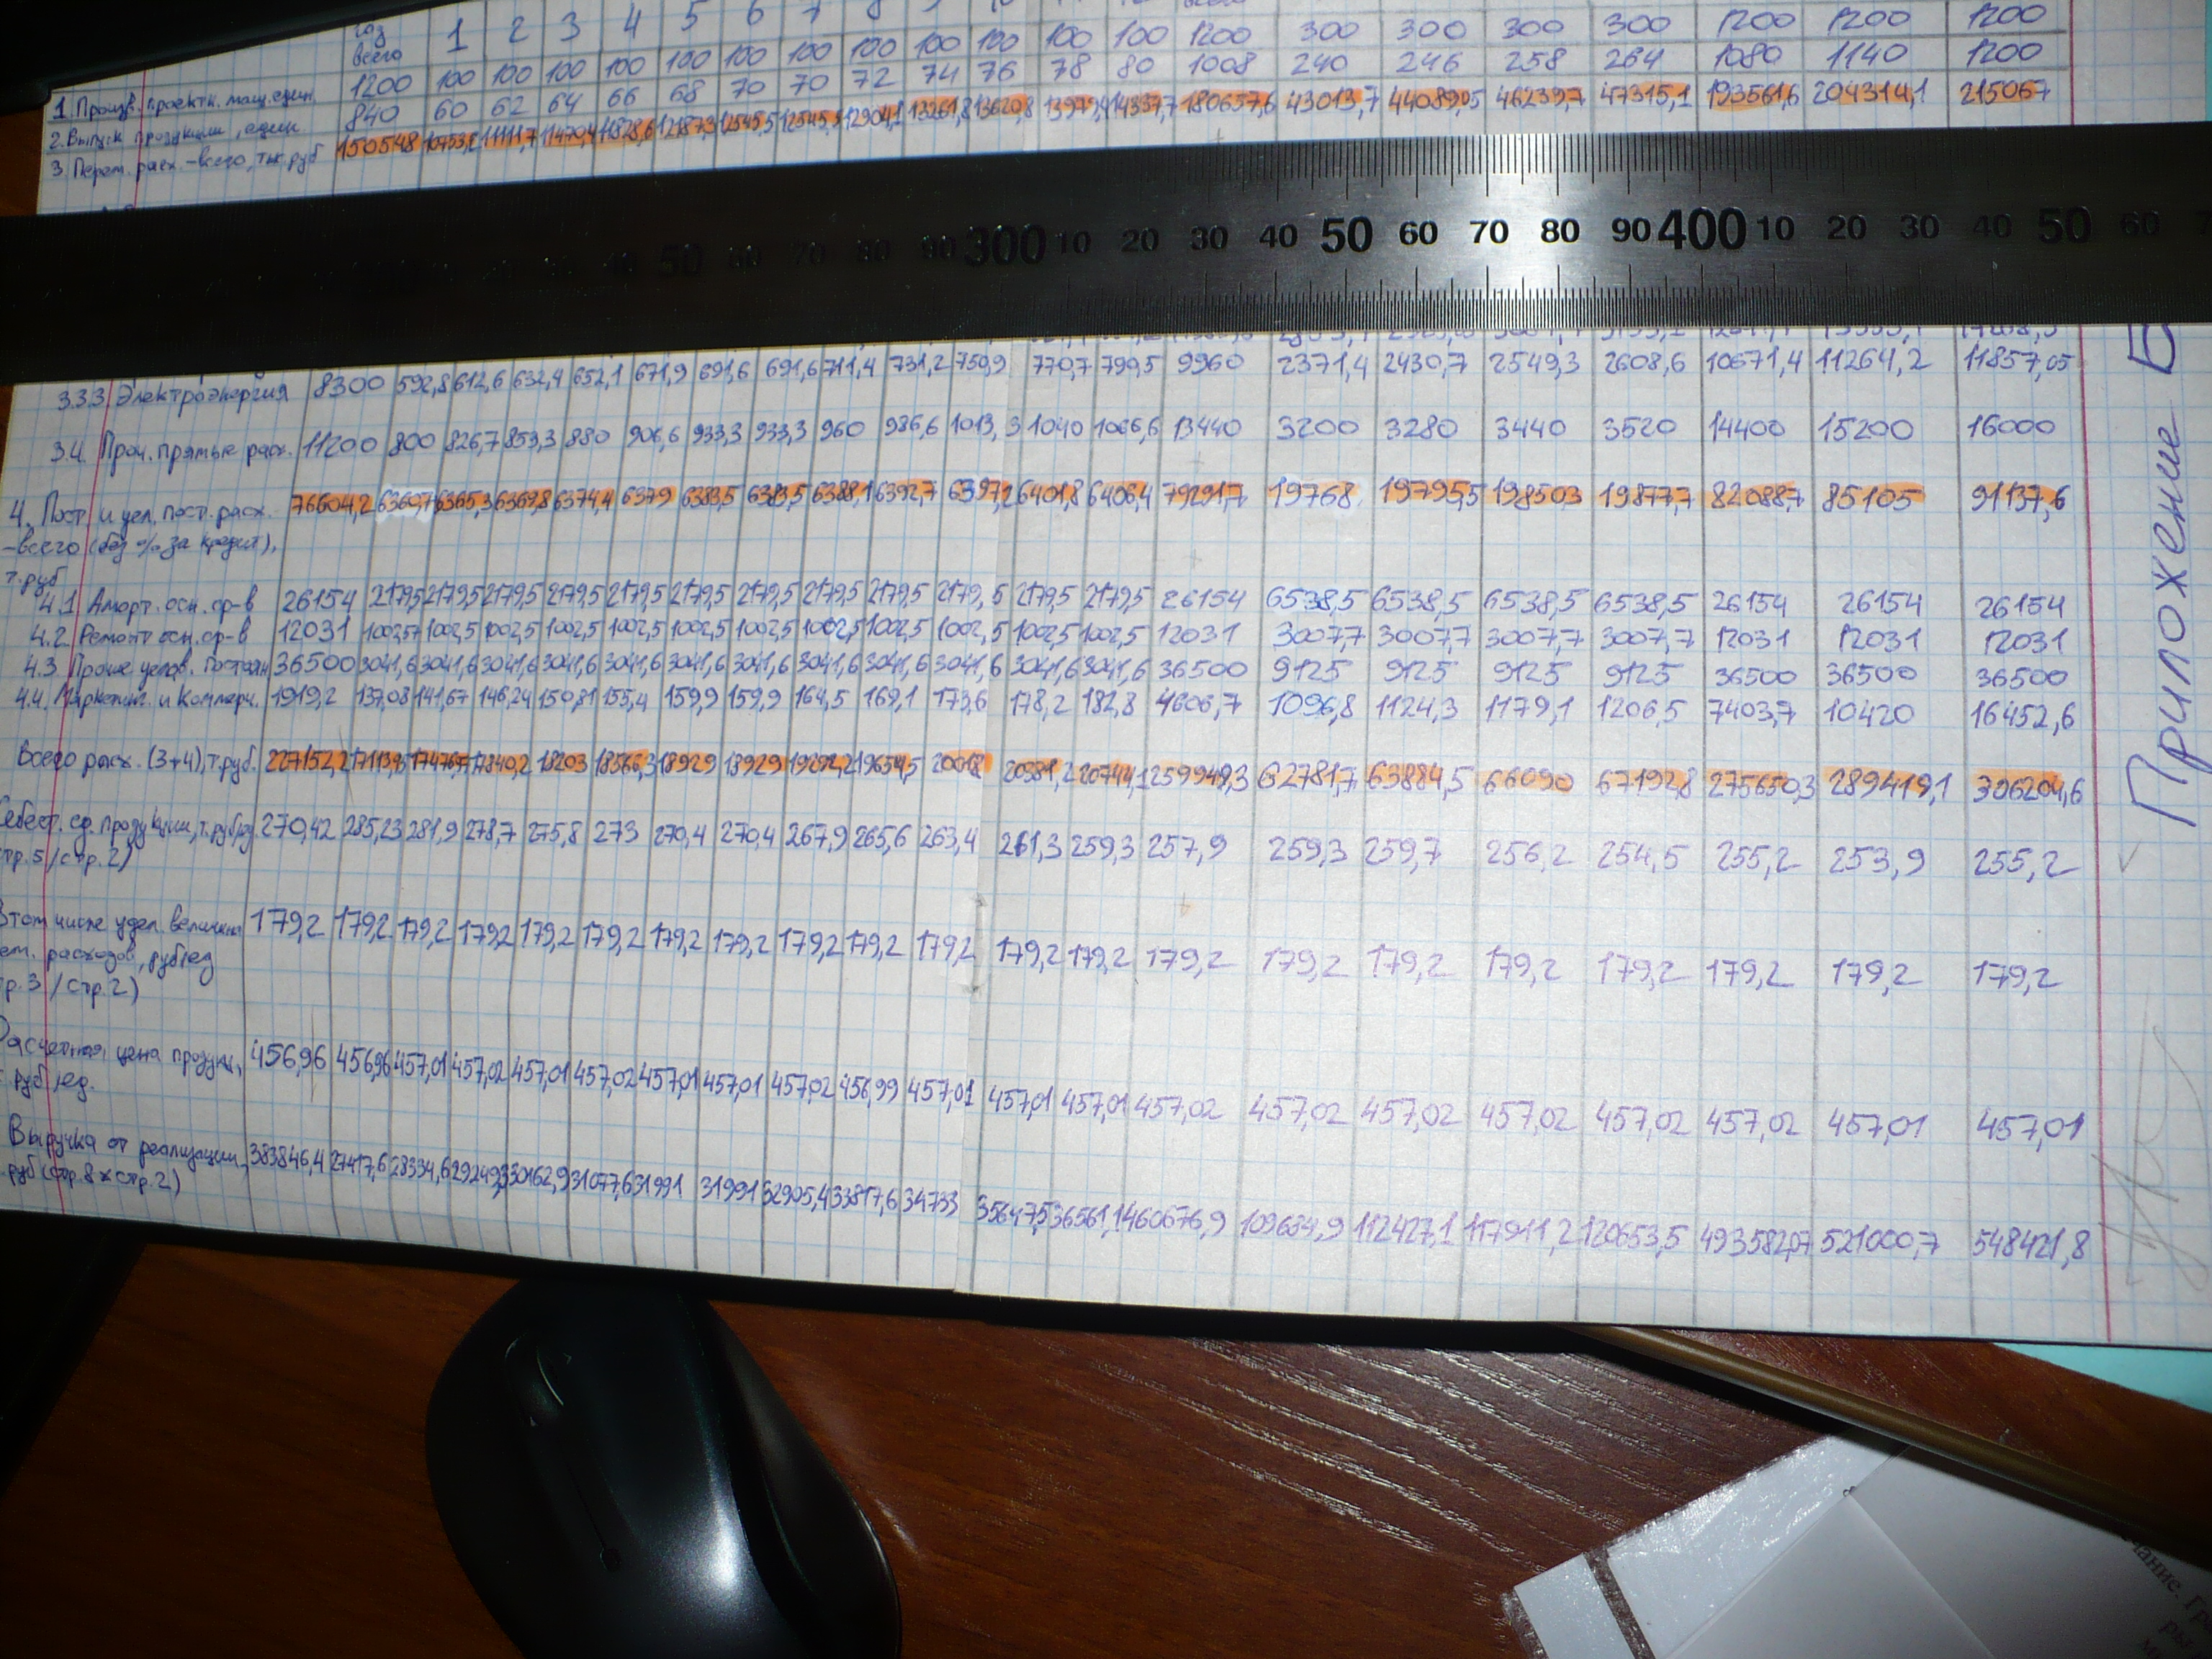 год всего 1 2 3 4 5 6 7
1. Произв. проектн. мощ. един. 1200 100 100 100 100 100 100 100 100 100 100 100 100 1200 300 300 300 300 1200 1200 1200
2. Выпуск продукции, един. 840 60 62 64 66 68 70 70 72 74 76 78 80 1008 240 246 258 264 1080 1140 1200
3 Перем. расх. -всего, тыс. руб 150548 10753,2 11111,7 11470,4 11828,6 12187,3 12545,5 12545,5 12904,1 13261,8 13620,8 13979,4 14337,7 180657,6 43013,7 44089,05 46239,7 47315,1 193561,6 204314,1 215067
300 10 20 30 40 50 60 70 80 90 400 10 20 30 40 50 60
3.3.3 Электроэнергия 8300 592,8 612,6 632,4 652,1 671,9 691,6 691,6 711,4 731,2 750,9 770,7 790,5 9960 2371,4 2430,7 2549,3 2608,6 10671,4 11264,2 11857,05
3.4. Проч. прямые расх. 11200 800 826,7 853,3 880 906,6 933,3 933,3 960 986,6 1013,3 1040 1066,6 13440 3200 3280 3440 3520 14400 15200 16000
4. Пост. и усл. пост. расх. 76604,2 6360,7 6365,3 6369,8 6374,4 6379 6383,5 6383,5 6388,1 6392,7 6397,2 6401,8 6406,4 79291,7 19768 19795,5 19850,3 19877,7 82088,7 85105 91137,6
-всего (без % за кредит),
т.руб
4.1 Аморт. осн. ср-в 26154 2179,5 2179,5 2179,5 2179,5 2179,5 2179,5 2179,5 2179,5 2179,5 2179,5 2179,5 2179,5 26154 6538,5 6538,5 6538,5 6538,5 26154 26154 26154
4.2. Ремонт осн. ср-в 12031 1002,57 1002,5 1002,5 1002,5 1002,5 1002,5 1002,5 1002,5 1002,5 1002,5 1002,5 1002,5 12031 3007,7 3007,7 3007,7 3007,7 12031 12031 12031
4.3 Прочие услов. постоян 36500 3041,6 3041,6 3041,6 3041,6 3041,6 3041,6 3041,6 3041,6 3041,6 3041,6 3041,6 3041,6 36500 9125 9125 9125 9125 36500 36500 36500
4.4. Маркетинг. и коммерч. 1919,2 137,08 141,67 146,24 150,81 155,4 159,9 159,9 164,5 169,1 173,6 178,2 182,8 4606,7 1096,8 1124,3 1179,1 1206,5 7403,7 10420 16452,6
Всего расх. (3+4), т.руб. 227152,2 17113,9 17476,9 17840,2 18203 18566,3 18929 18929 19292,2 19654,5 20018 20381,2 20744,1 259949,3 62781,7 63884,5 66090 67192,8 275650,3 289419,1 306204,6
Себест. ед. продукции, т.руб/ед 270,42 285,23 281,9 278,7 275,8 273 270,4 270,4 267,9 265,6 263,4 261,3 259,3 257,9 259,3 259,7 256,2 254,5 255,2 253,9 255,2
тр.5/стр.2)
Втом числе удел. величина 179,2 179,2 179,2 179,2 179,2 179,2 179,2 179,2 179,2 179,2 179,2 179,2 179,2 179,2 179,2 179,2 179,2 179,2 179,2 179,2 179,2
ем. расходов, руб/ед
р.3/стр.2)
Расчетная цена продукц, 456,96 456,96 457,01 457,02 457,01 457,02 457,01 457,01 457,02 456,99 457,01 457,01 457,01 457,02 457,02 457,02 457,02 457,02 457,02 457,01 457,01
руб/ед.
Выручка от реализации, 383846,4 27417,6 28334,6 29249,3 30162,9 31077,6 31991 31991 32905,4 33817,6 34733 35647,5 36561,1 460676,9 109684,9 112427,1 117911,2 120653,5 493582,07 521000,7 548421,8
руб (стр.8×стр.2)
Приложение Б